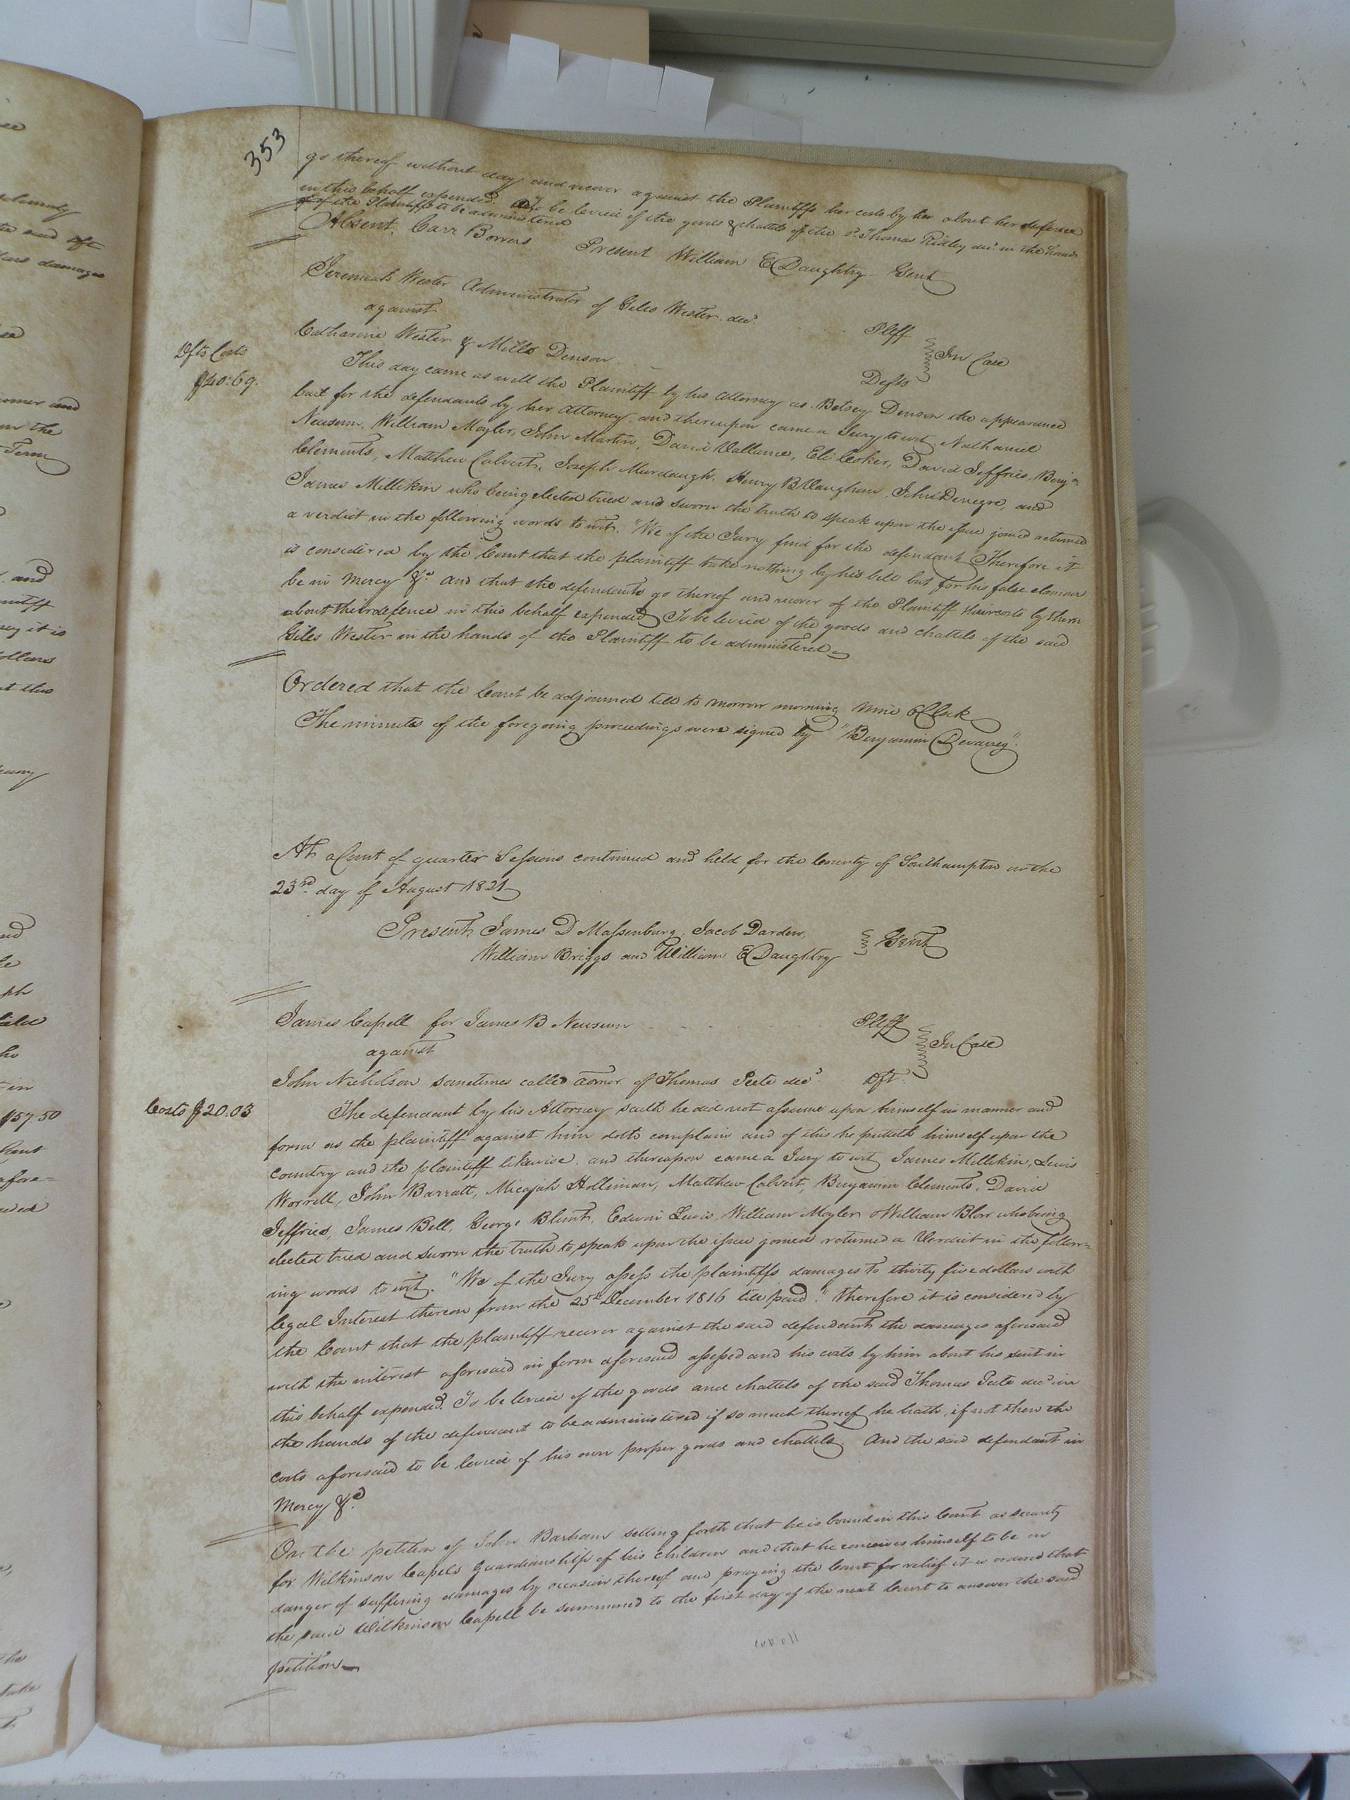 353
go thereof without day and recover against the Plaintiffs her costs by her about her defence
in this behalf expended. To be levied of the goods & chattels of the sd. Thomas Ridley decd in the hands
of the Plaintiffs to be administered
Absent. Carr Bowers Present William E Daughtry Gent
Jeremiah Wester Administrator of Giles Wester decd. Pltff
against In Case
Catharine Wester & Mills Denson Defts
Dfts Costs
$40:69.
This day came as well the Plaintiff by his attorney as Betsey Denson the appearance
bail for the defendants by her attorney and thereupon came a Jury to wit, Nathaniel
Newsum, William Moyler, John Martin, David Vallance, Eli Coker, David Jeffries, Benjn
Clements, Matthew Calvert, Joseph Murdaugh, Henry B Vaughan, John Denegre, and
James Millikin who being elected tried and sworn the truth to speak upon the issue joined returned
a verdict in the following words to wit. "We of the Jury find for the defendant" Therefore it
is considered by the Court that the plaintiff take nothing by his bill but for his false clamour
be in mercy &c. And that the defendants go thereof and recover of the Plaintiff their costs by them
about their defence in this behalf expended To be levied of the goods and chattels of the said
Giles Wester in the hands of the Plaintiff to be administered
Ordered that the Court be adjourned till to morrow morning nine OClock
The minutes of the foregoing proceedings were signed by "Benjamin Devany".
At a Court of quarter Sessions continued and held for the County of Southampton on the
23rd. day of August 1821
Present James D Massenburg, Jacob Darden,
William Briggs and William E Daughtry Gent
James Capell for James B Newsum Pltff
against In Case
John Nicholson sometimes called admor. of Thomas Peete decd. Dft.
Costs $20.03
The defendant by his Attorney saith he did not assume upon himself in manner and
form as the plaintiff against him doth complain and of this he putteth himself upon the
country and the plaintiff likewise. and thereupon came a Jury to wit, James Millikin, Lewis
Worrell, John Barratt, Micajah Holliman, Matthew Calvert, Benjamin Clements, David
Jeffries, James Bell, George Blunt, Edwin Lewis, William Moyler & William Blow who being
elected tried and sworn the truth to speak upon the issue joined returned a Verdict in the follow-
ing words to wit. "We of the Jury assess the plaintiffs damages to thirty five dollars with
legal Interest thereon from the 25th December 1816 till paid." Therefore it is considered by
the Court that the plaintiff recover against the said defendant the damages aforesaid
with the interest aforesaid in form aforesaid assessed and his costs by him about his suit in
this behalf expended. To be levied of the goods and chattels of the said Thomas Peete decd in
the hands of the defendant to be administered if so much thereof he hath, if not then the
costs aforesaid to be levied of his own proper goods and chattels And the said defendant in
Mercy &c.
On the petition of John Barham setting forth that he is bound in this Court as security
for Wilkinson Capels guardianship of his children and that he conceives himself to be in
danger of suffering damages by occasion thereof and praying the Court for relief it is ordered that
the said Wilkinson Capell be summoned to the first day of the next Court to answer the said
petition